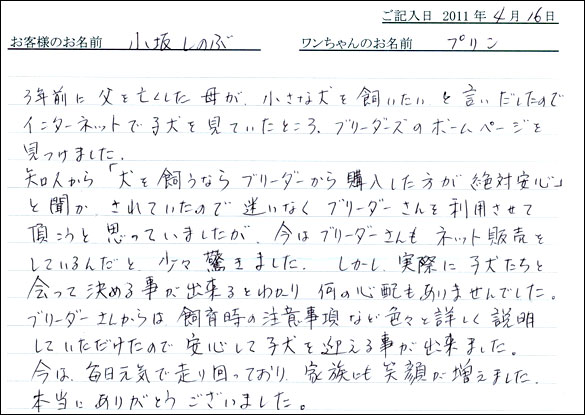 ご記入日 2011 年 4 月 16 日
お客様のお名前 小坂 しのぶ ワンちゃんのお名前 プリン
3年前に父を亡くした母が、小さな犬を飼いたいと言いだしたので
インターネットで子犬を見ていたところ、ブリーダーズのホームページを
見つけました。
知人から「犬を飼うならブリーダーから購入した方が絶対安心」
と聞かされていたので迷いなくブリーダーさんを利用させて
頂こうと思っていましたが、今はブリーダーさんもネット販売を
しているんだと少々驚きました。しかし、実際に子犬たちと
会って決める事が出来るとわかり何の心配もありませんでした。
ブリーダーさんからは飼育時の注意事項など色々と詳しく説明
していただけたので安心して子犬を迎える事が出来ました。
今は、毎日元気で走り回っており、家族にも笑顔が増えました。
本当にありがとうございました。